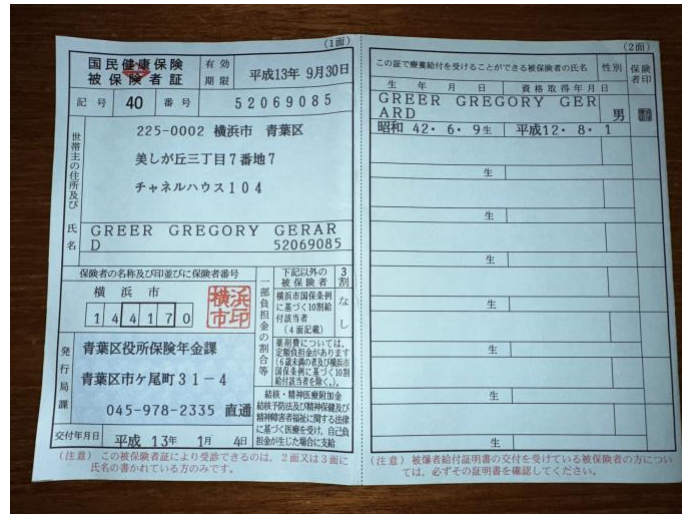 (1面)
国民健康保険
被保険者証
有効
期限
平成13年 9月30日
記号 40 番号 52069085
世帯主の住所及び氏名
225-0002 横浜市 青葉区
美しが丘三丁目7番地7
チャネルハウス104
GREER GREGORY GERAR
D 52069085
保険者の名称及び印並びに保険者番号
横浜市
144170
横浜
市印
一部負担金の割合等
下記以外の
被保険者
3割
横浜市国保条例
に基づく10割給
付該当者
(4面記載)
なし
薬剤費については、
定額負担金があります
(6歳未満の者及び横浜市
国保条例に基づく10割
給付該当者を除く。)。
結核・精神医療附加金
結核予防法及び精神保健及び
精神障害者福祉に関する法律
に基づく医療を受け、自己負
担金が生じた場合に支給
発行局課
青葉区役所保険年金課
青葉区市ケ尾町31-4
045-978-2335 直通
交付年月日 平成 13年 1月 4日
(注意) この被保険者証により受診できるのは、2面又は3面に
氏名の書かれている方のみです。
(2面)
この証で療養給付を受けることができる被保険者の氏名
性別
保険者印
生年月日
資格取得年月日
GREER GREGORY GER
ARD
男
昭和 42・ 6・ 9生 平成12・ 8・ 1
生
生
生
生
生
生
生
(注意) 被爆者給付証明書の交付を受けている被保険者の方につい
ては、必ずその証明書を確認してください。